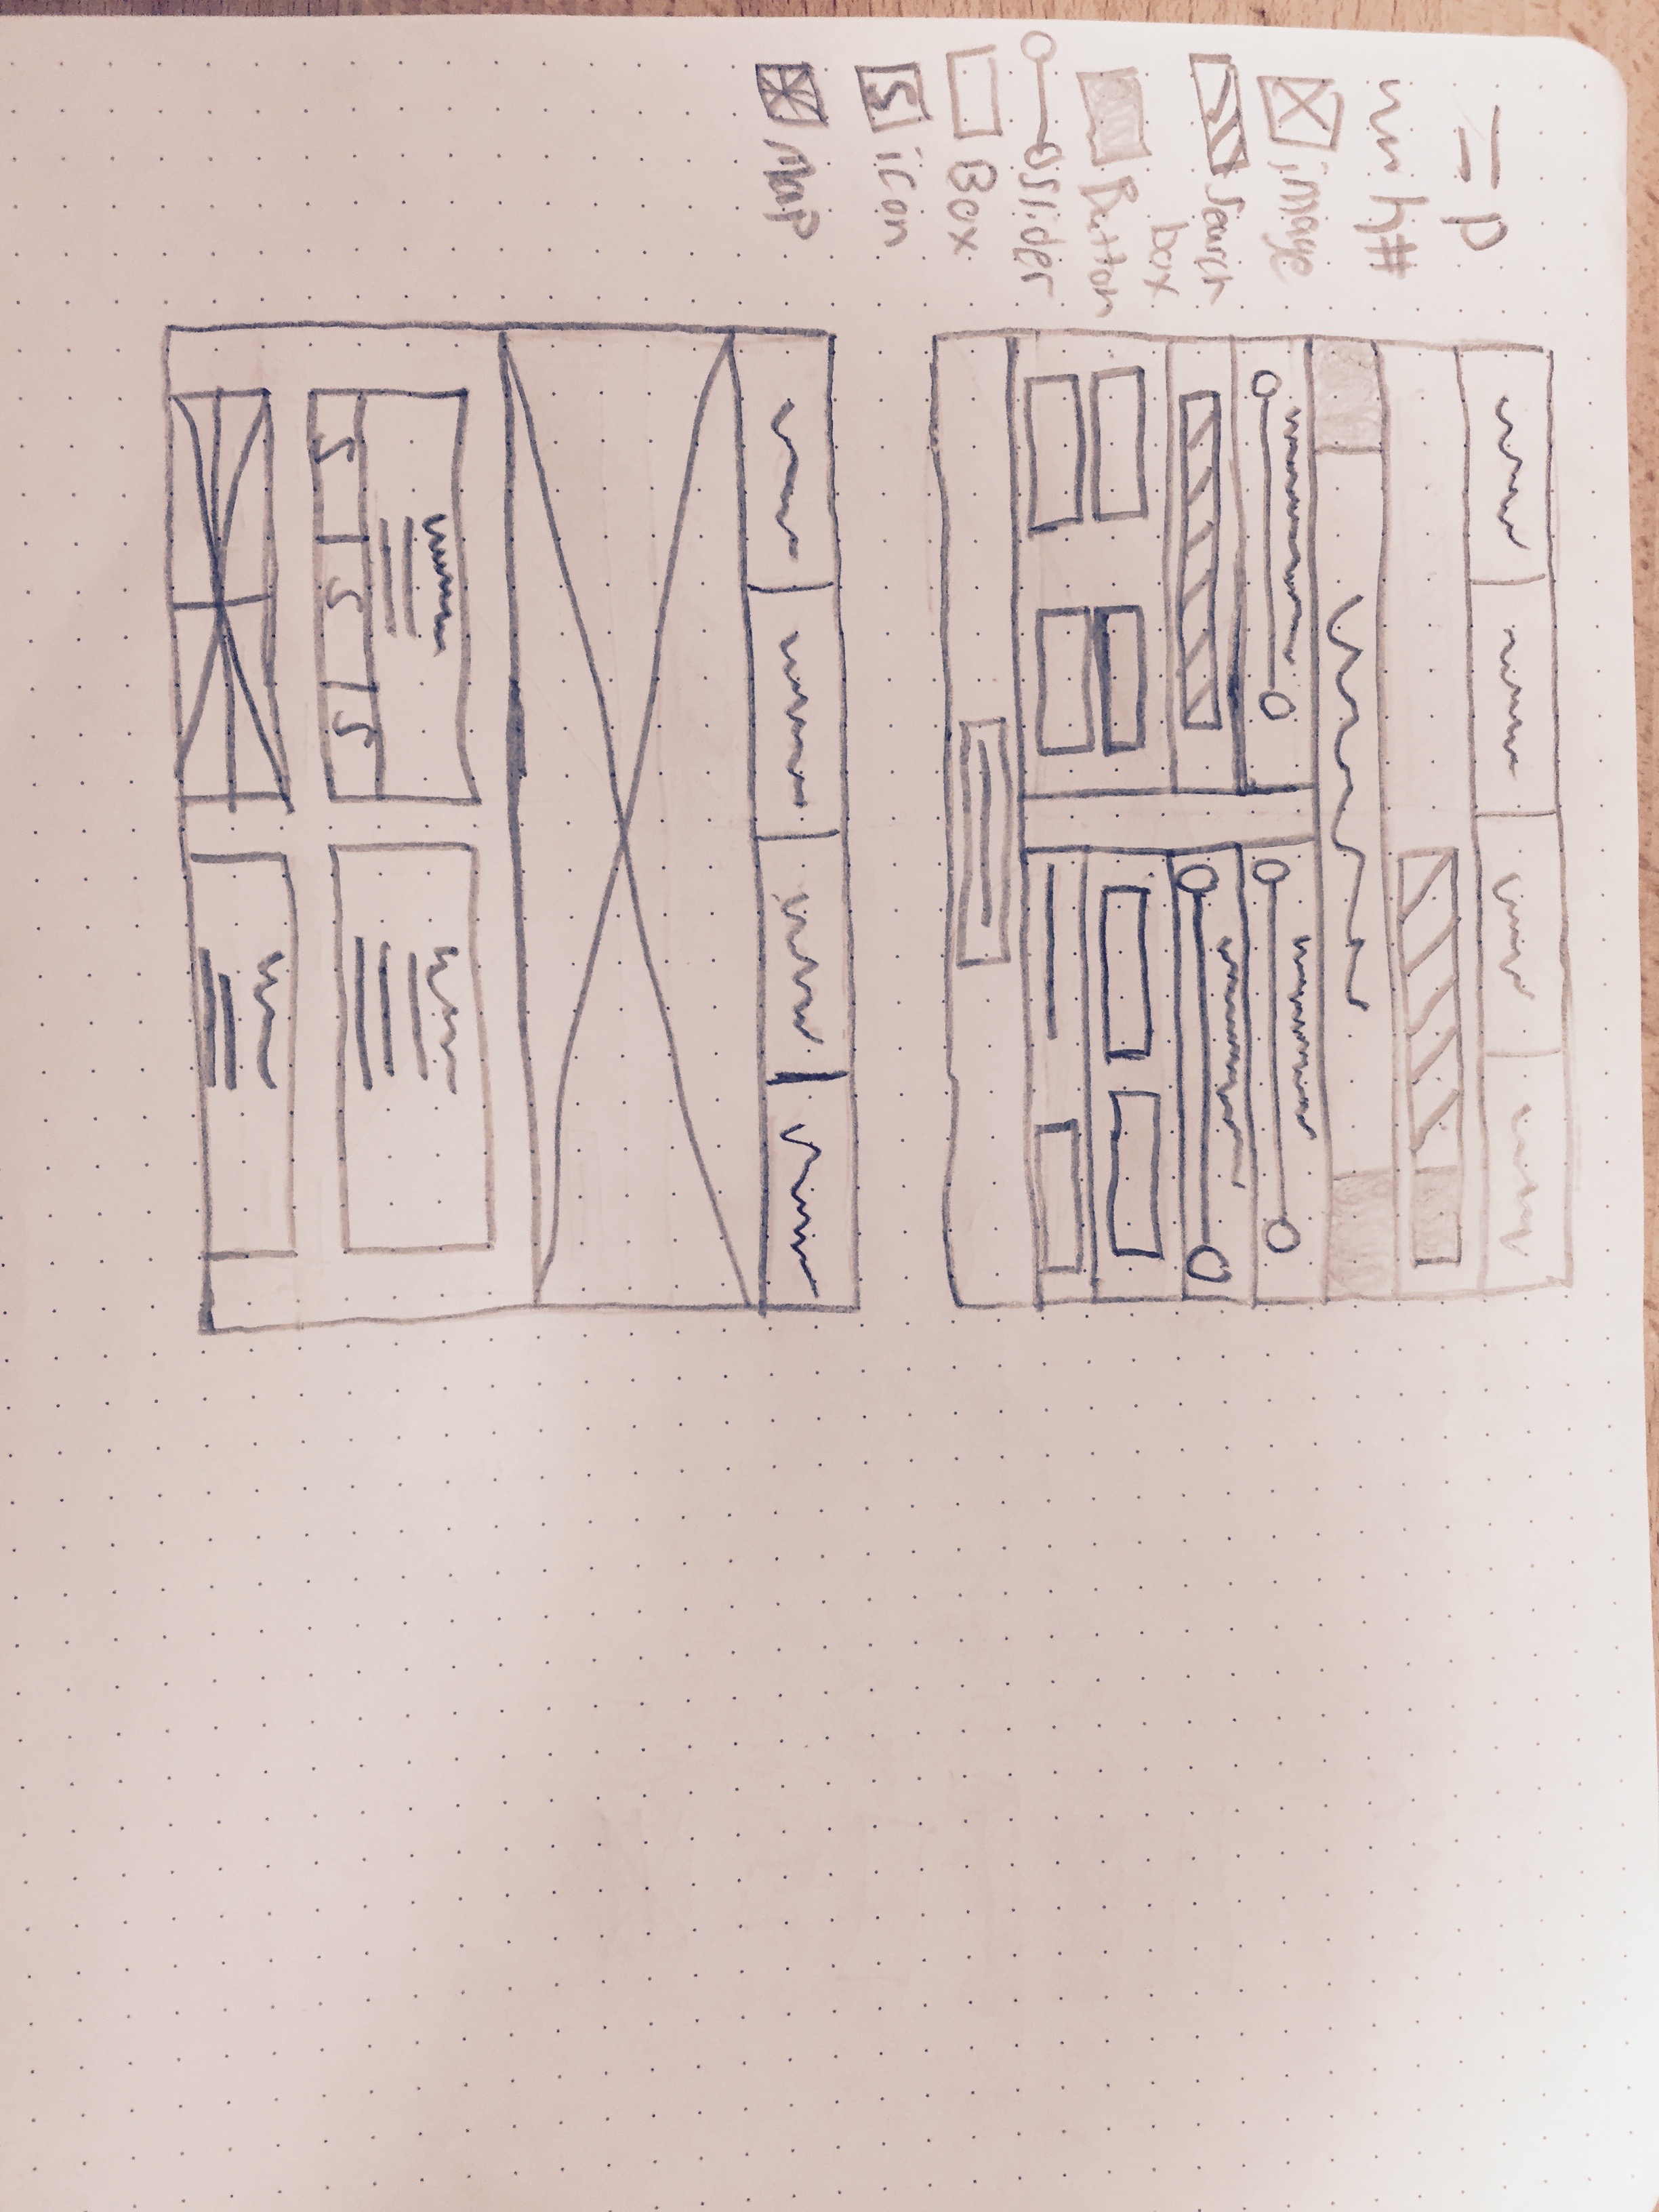 p
h#
image
Search
box
Button
slider
Box
icon
map